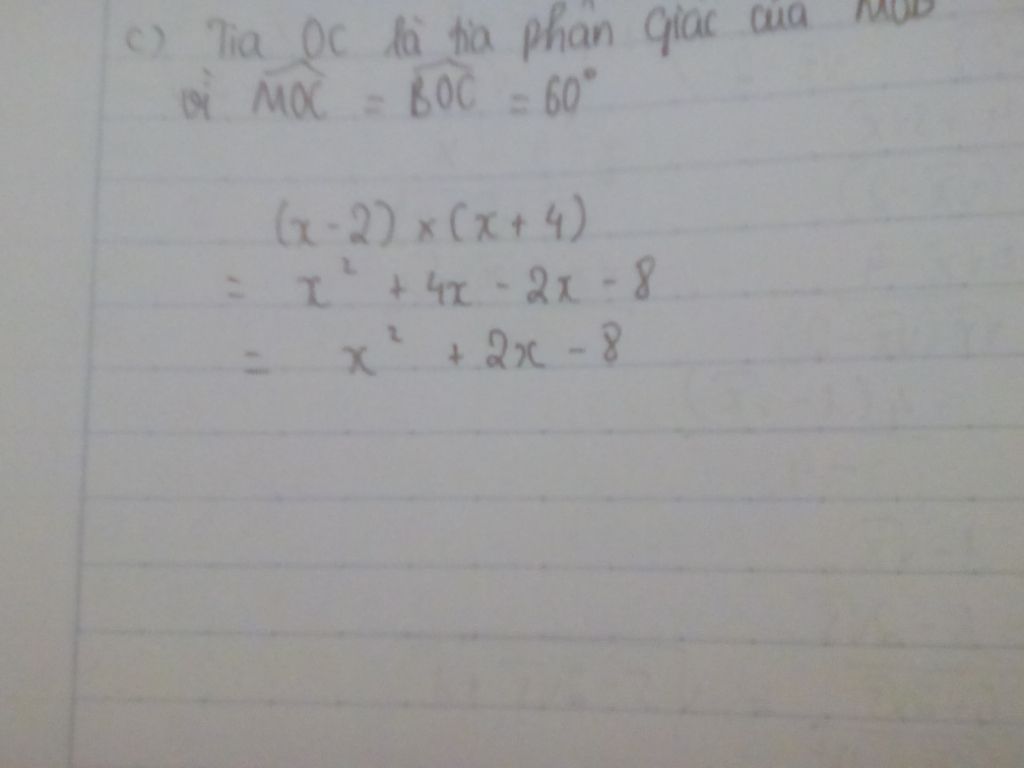 c) Tia OC là tia phân giác của MOB
vì MOC = BOC = 60°
(x - 2) × (x + 4)
= x² + 4x - 2x - 8
= x² + 2x - 8